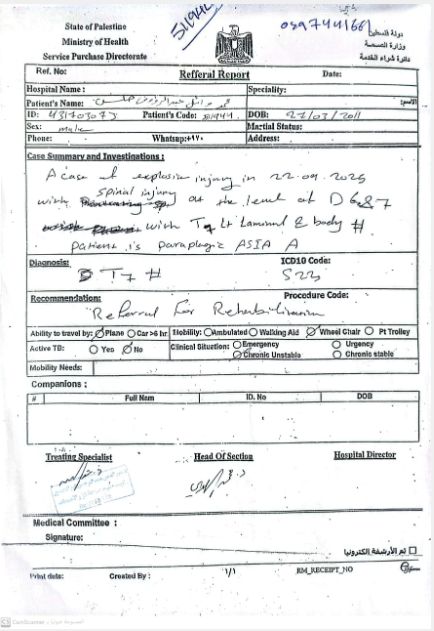 511944
0597441661
State of Palestine
Ministry of Health
Service Purchase Directorate
دولة فلسطين
وزارة الصحة
دائرة شراء الخدمة
Ref. No:
Refferal Report
Date:
Hospital Name :
Speciality:
Patient's Name:
الاسم:
ID:
Patient's Code: 511944
DOB: 27/03/2011
Sex: male
Martial Status:
Phone:
Whatsup:+٩٧٠
Address:
Case Summary and Investigations :
A case of explosive injury in 22.09.2025
with spinal injury at the level of D 6&7
with T7 Lt Laminal & body #
patient is paraplegic ASIA A
Diagnosis:
ICD10 Code:
T7 #
S22
Recommendation:
Procedure Code:
Referral for Rehabilitation
Ability to travel by: Plane Car >6 hr Mobility: Ambulated Walking Aid Wheel Chair Pt Trolley
Active TB: Yes No Clinical Situation: Emergency Urgency
Chronic Unstable Chronic stable
Mobility Needs:
Companions :
# Full Nam ID. No DOB
Treating Specialist Head Of Section Hospital Director
Medical Committee :
Signature:
تم الأرشفة إلكترونيا
Print date: Created By : 1/1 RM_RECEIPT_NO
CamScanner